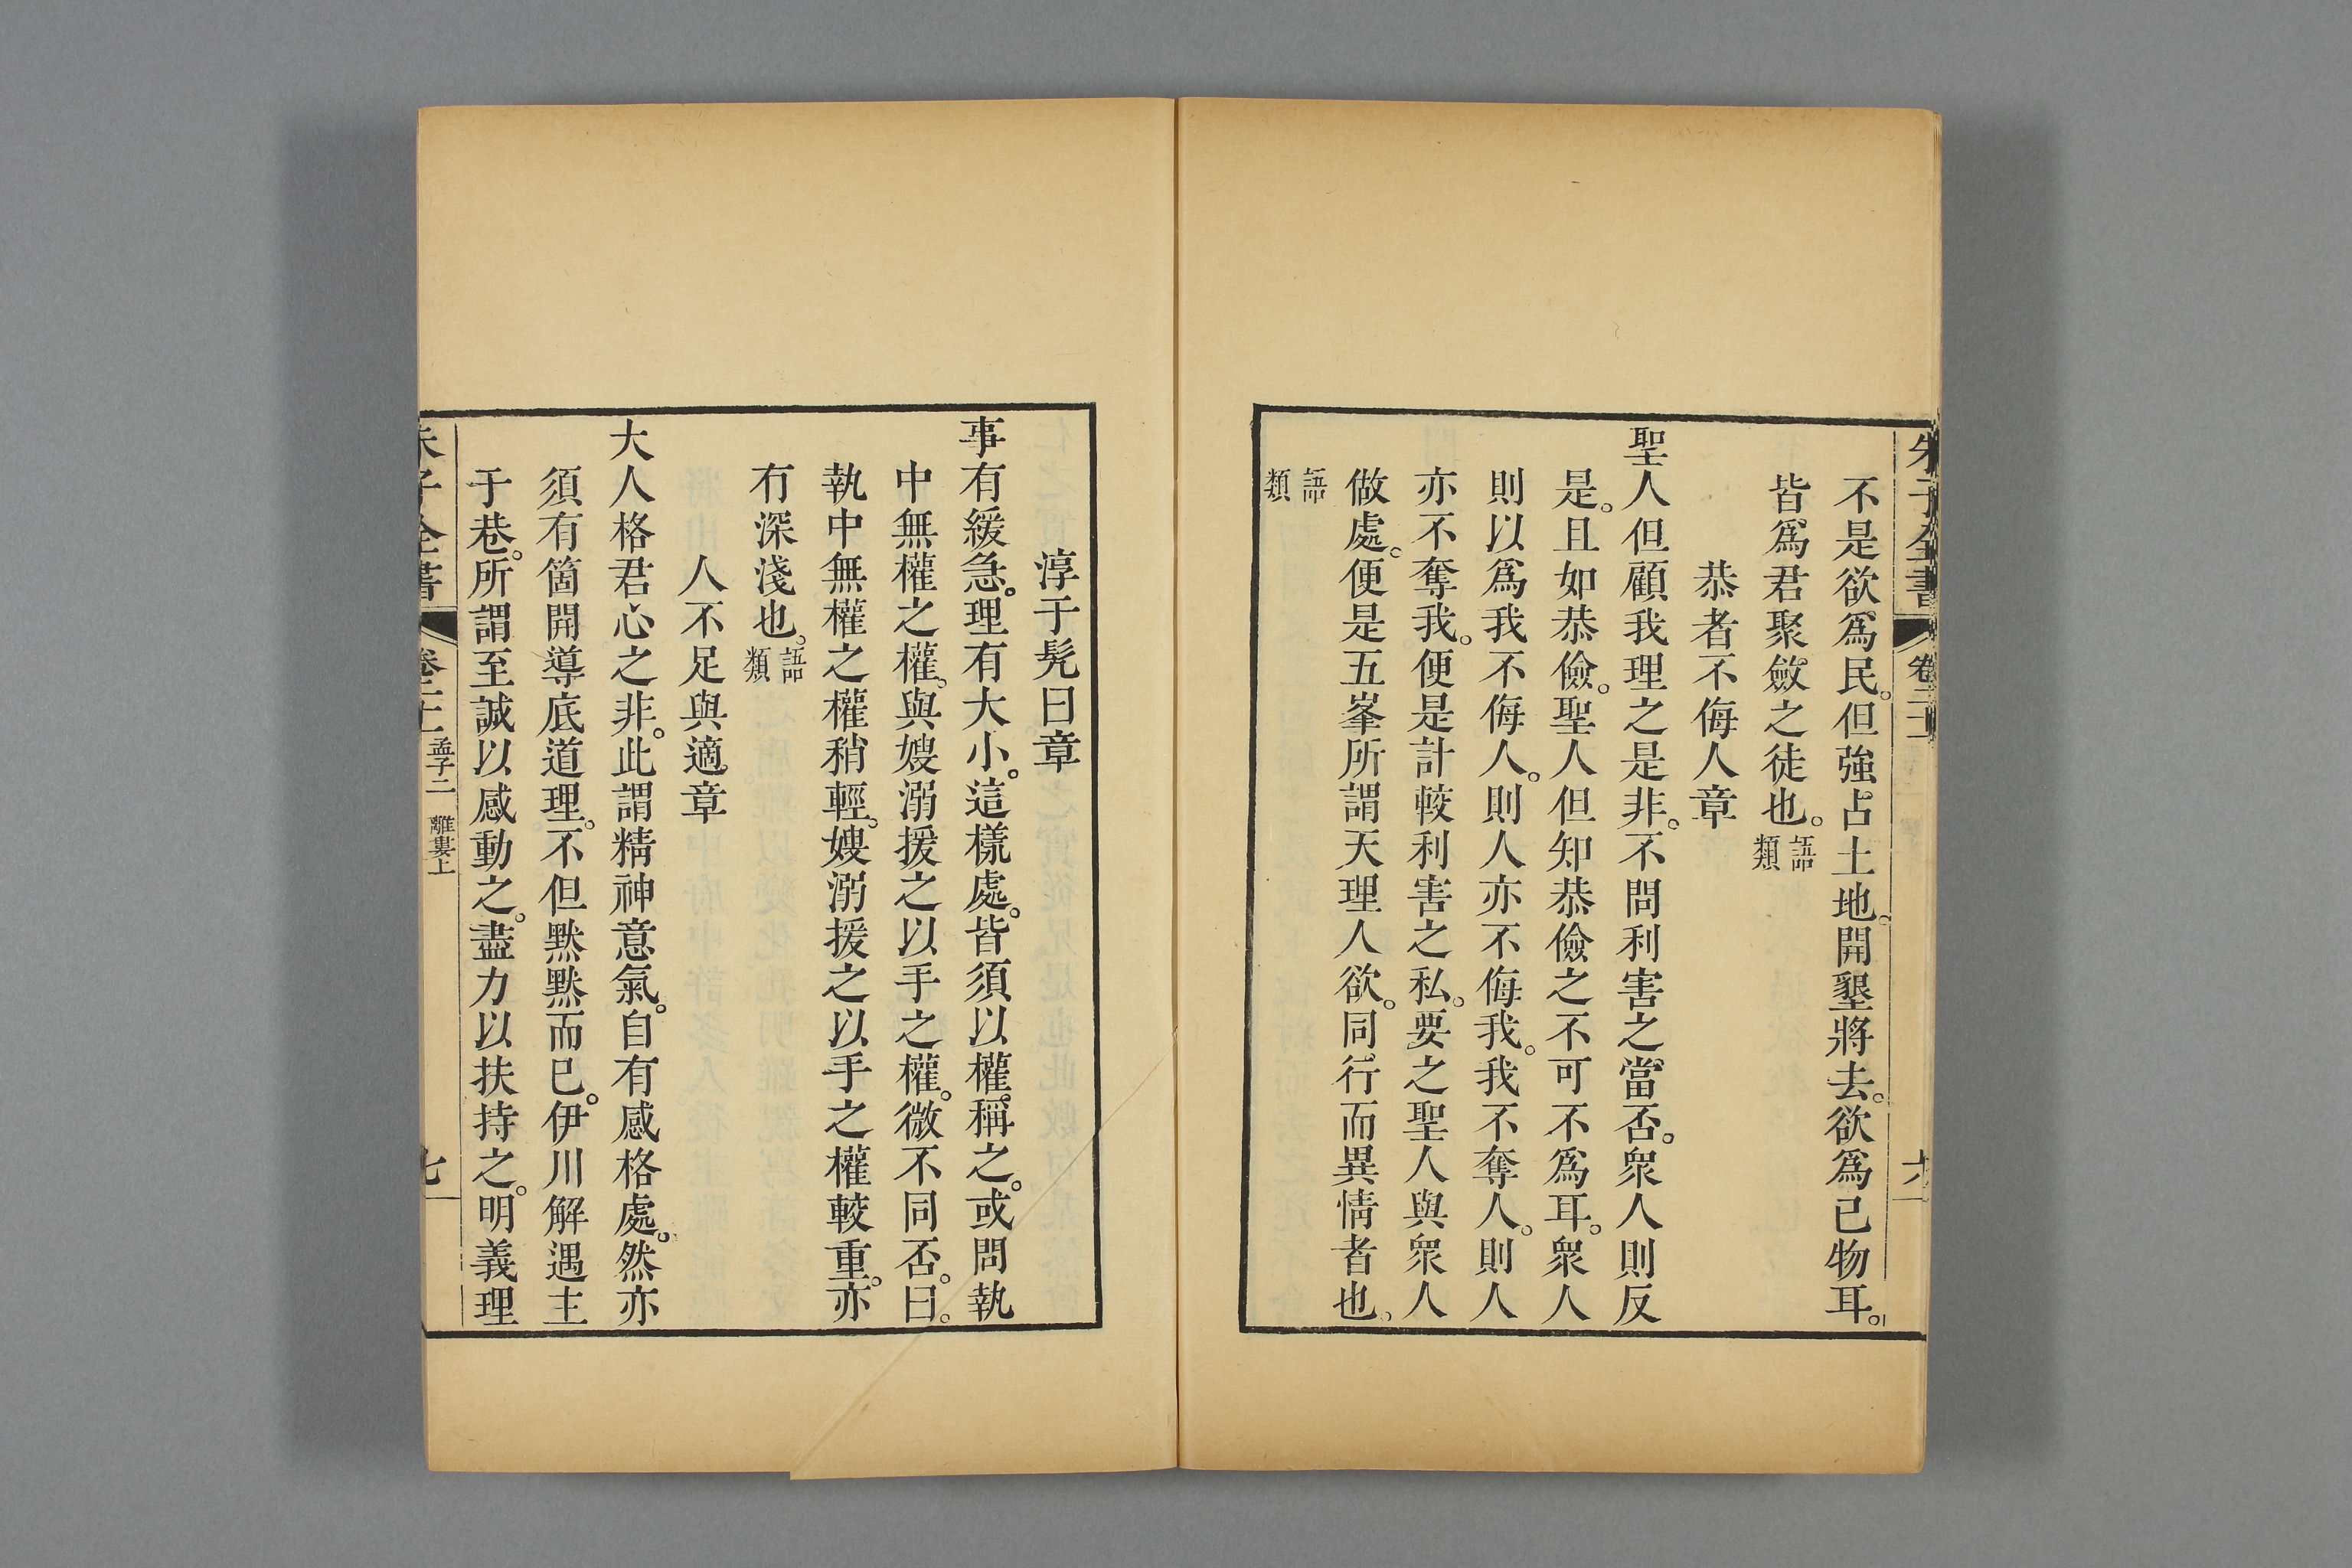 朱子全書 卷二十一 六
不是欲爲民。但強占土地。開墾將去。欲爲己物耳。
皆爲君聚斂之徒也。語類
恭者不侮人章
聖人但顧我理之是非。不問利害之當否。衆人則反
是。且如恭儉。聖人但知恭儉之不可不爲耳。衆人
則以爲我不侮人。則人亦不侮我。我不奪人。則人
亦不奪我。便是計較利害之私。要之聖人與衆人
做處。便是五峯所謂天理人欲。同行而異情者也。
語類
淳于髡曰章
事有緩急。理有大小。這樣處。皆須以權稱之。或問執
中無權之權。與嫂溺援之以手之權。微不同否。曰。
執中無權之權稍輕。嫂溺援之以手之權較重。亦
有深淺也。語類
人不足與適章
大人格君心之非。此謂精神意氣。自有感格處。然亦
須有箇開導底道理。不但默默而已。伊川解遇主
于巷。所謂至誠以感動之。盡力以扶持之。明義理
朱子全書 卷二十一 孟子二 離婁上 七